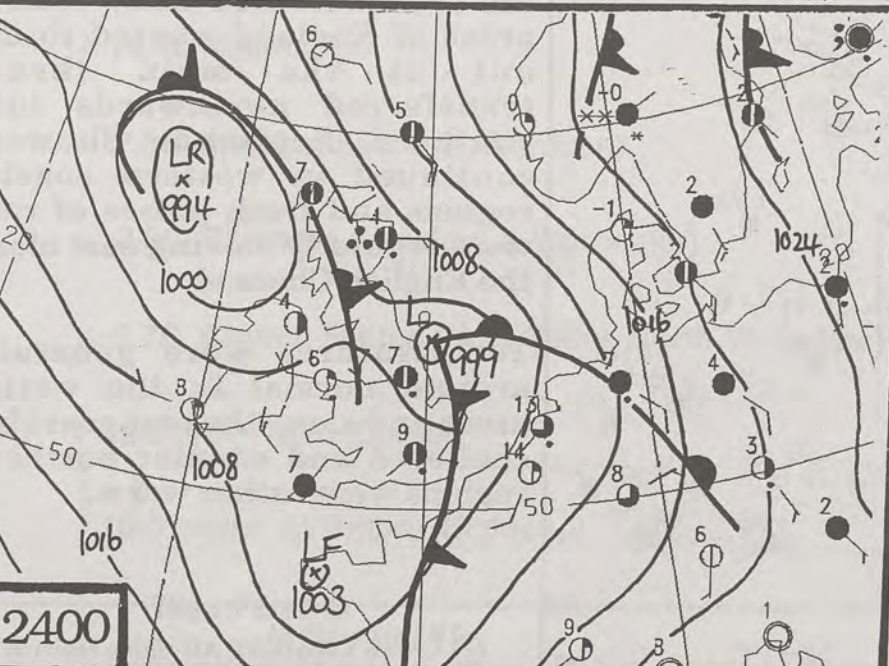 6
5
0
+0
2
LR
994
7
4
1008
2
1
1024
2
2
1000
4
L
999
1016
6
8
7
4
13
14
9
3
1008
7
50
50
8
2
1016
LF
1003
6
2400
9
8
1